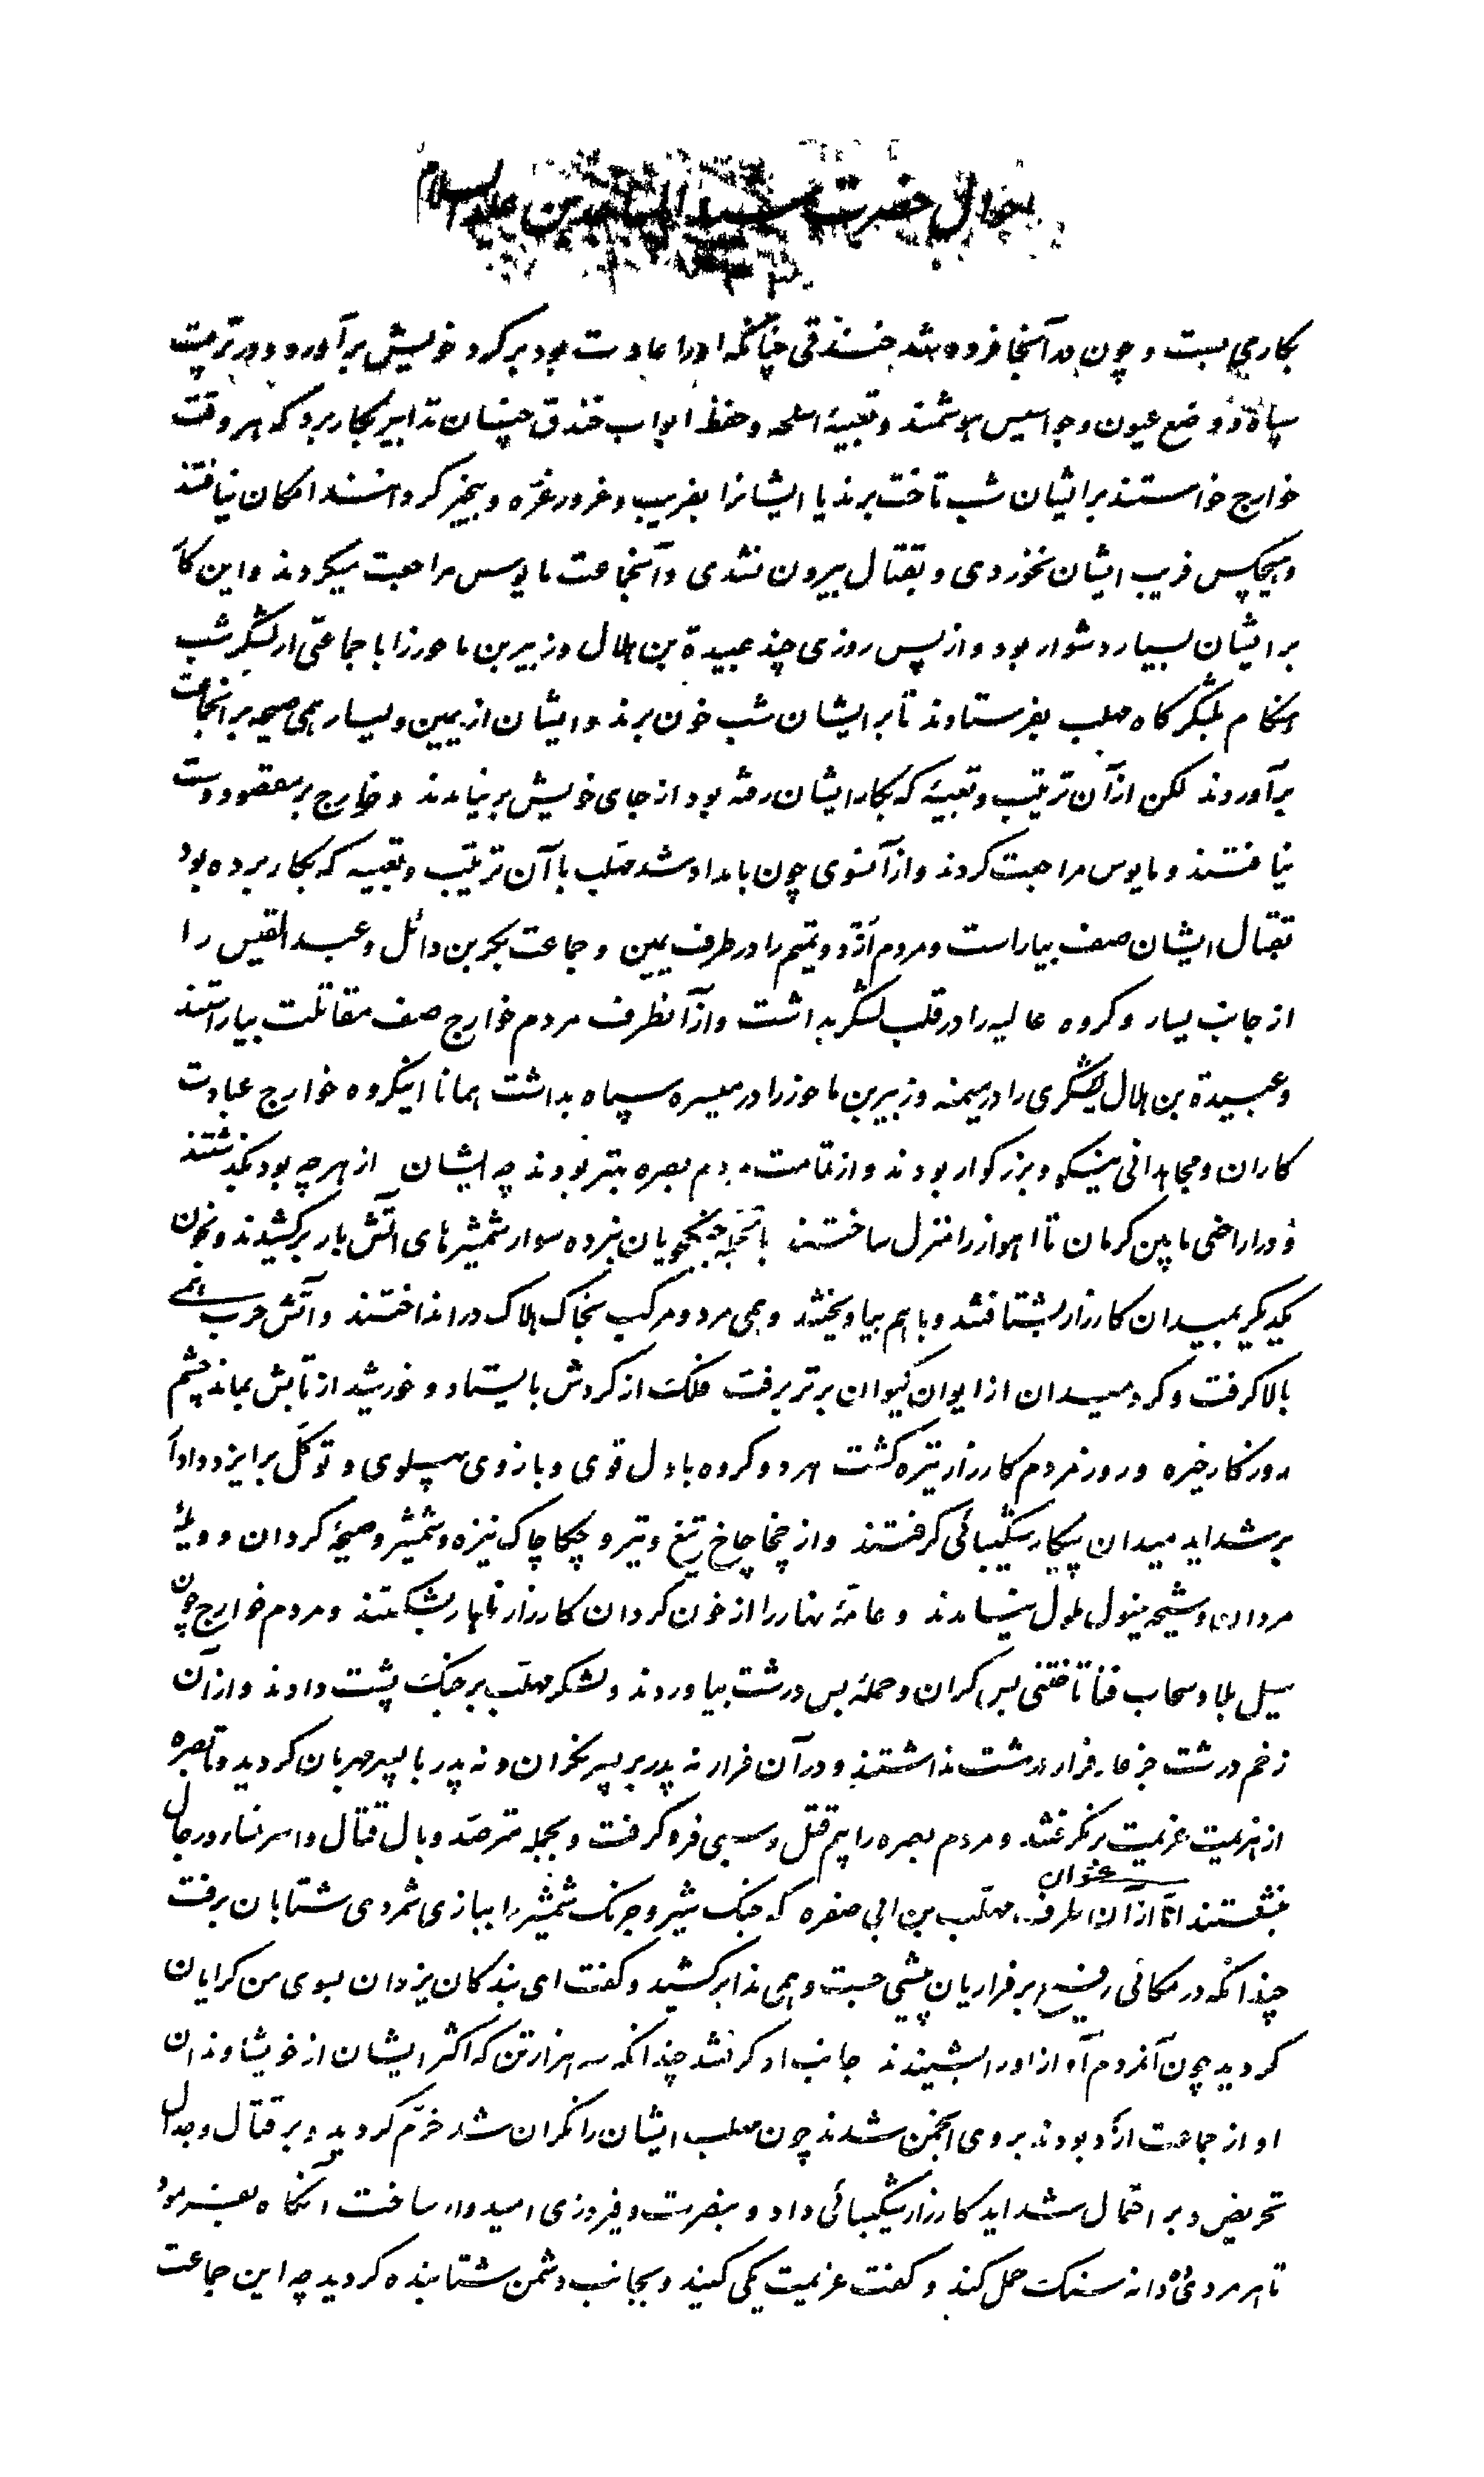 احوال حضرت سید الساجدین علیه السلام
بکاری بست و چون در آنجا فرود شد خندقی چنانکه او را عادت بود بر گرد خویش برآورد و در ترتیب
سپاه و وضع عیون و جواسیس هوشمند و تعبیهٔ اسلحه و حفظ ابواب خندق چنان تدابیر بکار برد که هر وقت
خوارج خواستند بر ایشان شب تاخت برند یا ایشانرا بفریب و غرور غرّه و بیخبر گردانند امکان نیافتند
و هیچکس فریب ایشان نخوردی و بقتال بیرون نشدی و آنجماعت مایوس مراجعت میکردند و این کا
بر ایشان بسیار دشوار بود و از پس روزی چند عبیدة بن هلال و زبیر بن ماحوز را با جماعتی از لشکر شب
هنگام بلشکرگاه مهلب بفرستادند تا بر ایشان شب خون برند و ایشان از یمین و یسار همی صیحه بر آنجماعت
برآوردند لکن از آن ترتیب و تعبیهٔ که بکار ایشان رفته بود از جای خویش برنیامدند و خوارج بر مقصود دست
نیافتند و مایوس مراجعت کردند و از آنسوی چون بامداد شد مهلّب با آن ترتیب و تعبیه که بکار برده بود
بقتال ایشان صف بیاراست و مردم اَزْد و تمیم را در طرف یمین و جماعت بکر بن وائل و عبد القیس را
از جانب یسار و گروه عالیه را در قلب لشکر بداشت و از آنطرف مردم خوارج صف مقاتلت بیاراستند
و عبیدة بن هلال یشکری را در میمنه و زبیر بن ماحوز را در میسره سپاه بداشت همانا اینگروه خوارج عبادت
کاران و مجاهدانی نیکو و بزرگوار بودند و از تمامت مردم بصره بهتر بودند چه ایشان از هر چه بود بگذشتند
و در اراضی مابین کرمان تا اهواز را منزل ساختند بالجمله جنگجویان نبرده سوار شمشیرهای آتش بار برکشیدند و بخون
یکدیگر بمیدان کارزار بشتافتند و با هم بیاویختند و همی مرد و مرکب بخاک هلاک در انداختند و آتش حرب همی
بالا گرفت و گرد میدان از ایوان کیوان برتر برفت فلک از گردش بایستاد و خورشید از تابش بماند چشم
روزگار خیره و روز مردم کارزار تیره گشت هر دو گروه با دل قوی و بازوی پهلوی و توکّل بر ایزد دادا
بر شداید میدان پیکار شکیبائی گرفتند و از چخاچاخ تیغ و تیر و چکاچاک نیزه و شمشیر و صیحهٔ گردان و ویلهٔ
مردان و شیحه خیول ملول نیامدند و عامّهٔ نهار را از خون گردان کارزار ناهار بشکستند و مردم خوارج چون
سیل بلا و سحاب فنا تاختنی بس گران و حملهٔ بس درشت بیاوردند و لشکر مهلّب بر جنگ پشت دادند و از آن
زخم درشت جز عار فرار در مشت نداشتند و در آن فرار نه پدر بر پسر نگران و نه پدر با پسر مهربان گردید و تا بصره
از هزیمت عزیمت برنگرفتند و مردم بصره را بیم قتل و سبی فرو گرفت و بجمله مترصّد وبال قتال و اسر نساء و رجال
بنشستند امّا از آن طرف مهلّب بن ابی صفره که جنگ شیر و جرنگ شمشیر را ببازی شمردی شتابان برفت
عنوان
چندانکه در مکانی رفیع بر فراریان پیشی جست و همی ندا برکشید و گفت ای بندگان یزدان بسوی من گرایان
گردید چون آنمردم آواز او را بشنیدند جانب او گرفتند چندانکه سه هزار تن که اکثر ایشان از خویشاوندان
او از جماعت ازد بودند بروی انجمن شدند چون مهلب ایشان را نگران شد خرّم گردید و بر قتال و جدال
تحریض و بر احتمال شداید کارزار شکیبائی داد و بنصرت و فیروزی امیدوار ساخت آنگاه بفرمود
تا هر مردی ده دانه سنگ حمل کند و گفت عزیمت یکی کنید و بجانب دشمن شتابنده گردید چه این جماعت